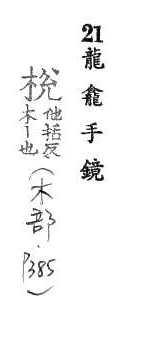 21龍龕手鏡
梲他括反木丨也(木部.P385)